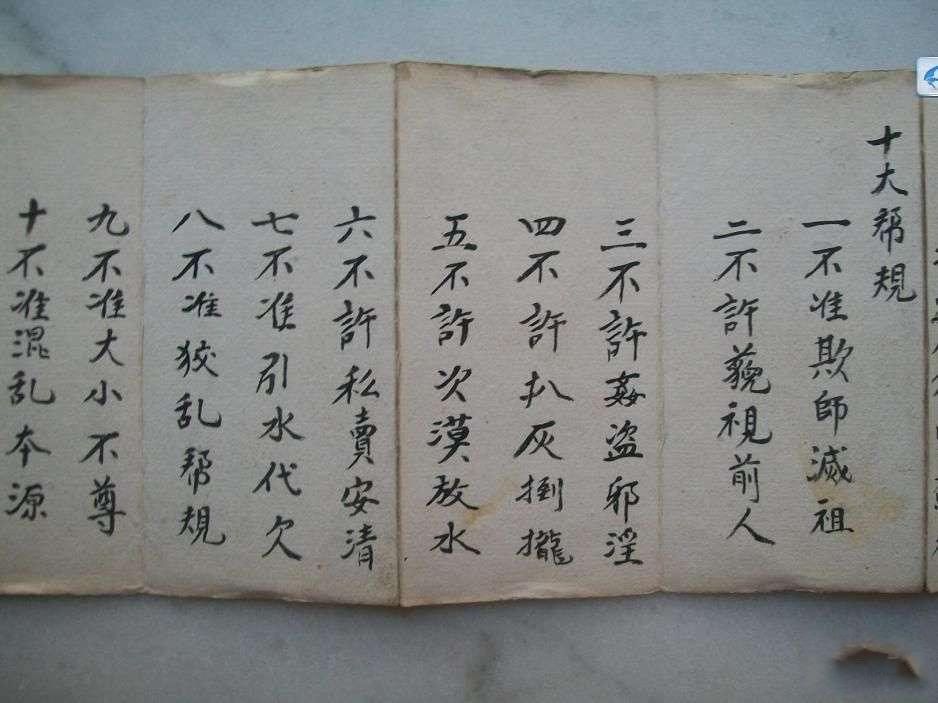 十大帮規
一不准欺師滅祖
二不許藐視前人
三不許姦盗邪淫
四不許扒灰捯攏
五不許次漠放水
六不許私賣安清
七不准引水代欠
八不准狡乱帮規
九不准大小不尊
十不准混乱本源